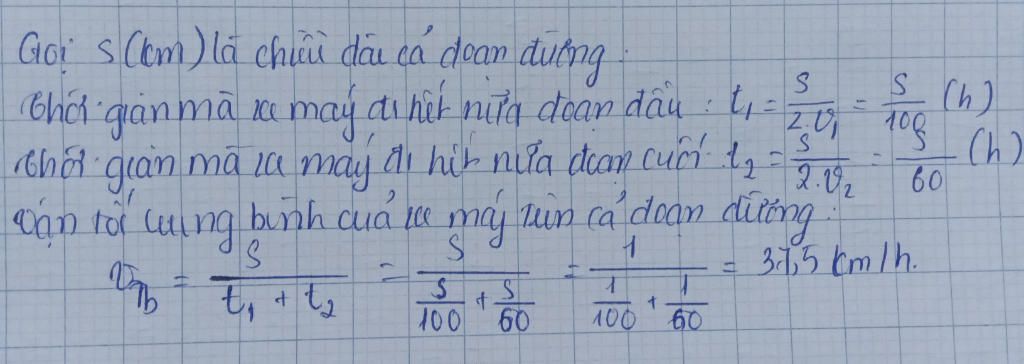 Gọi s(km) là chiều dài cả đoạn đường.
Thời gian mà xe máy đi hết nửa đoạn đầu : t₁ = s/(2.v₁) = s/100 (h)
Thời gian mà xe máy đi hết nửa đoạn cuối t₂ = s/(2.v₂) = s/60 (h)
Vận tốc trung bình của xe máy trên cả đoạn đường :
v_Tb = s/(t₁ + t₂) = s/(s/100 + s/60) = 1/(1/100 + 1/60) = 37,5 km/h.